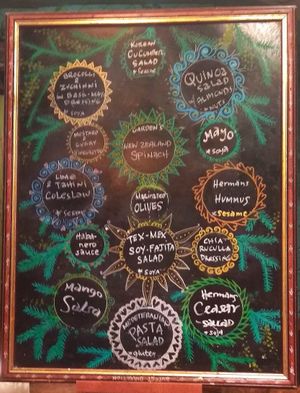 KOREAN
CUCUMBER
SALAD
+ SESAME
BROCOLLI
&
ZUCHINNI
W BASIL-MAYO
DRESSING
+ SOYA
QUINOA
SALAD
W ALMONDS
+ NUTS
MUSTARD
CURRY
VINAIGRETTE
GARDEN'S
NEW ZEALAND
SPINACH
MAYO
+ SOYA
LIME &
TAHINI
COLESLAW
+ SESAME
MARINATED
OLIVES
Hermans
HUMMUS
+ SESAME
HABA-
NERO
SAUCE
TEX-MEX
SOY-FAJITA
SALAD
+ SOYA
CHIA-
RUCULLA
DRESSING
MANGO
SALSA
MEDETERRANEAN
PASTA
SALAD
+ gluten
Hermans
CEASER
SALLAD
+ soja